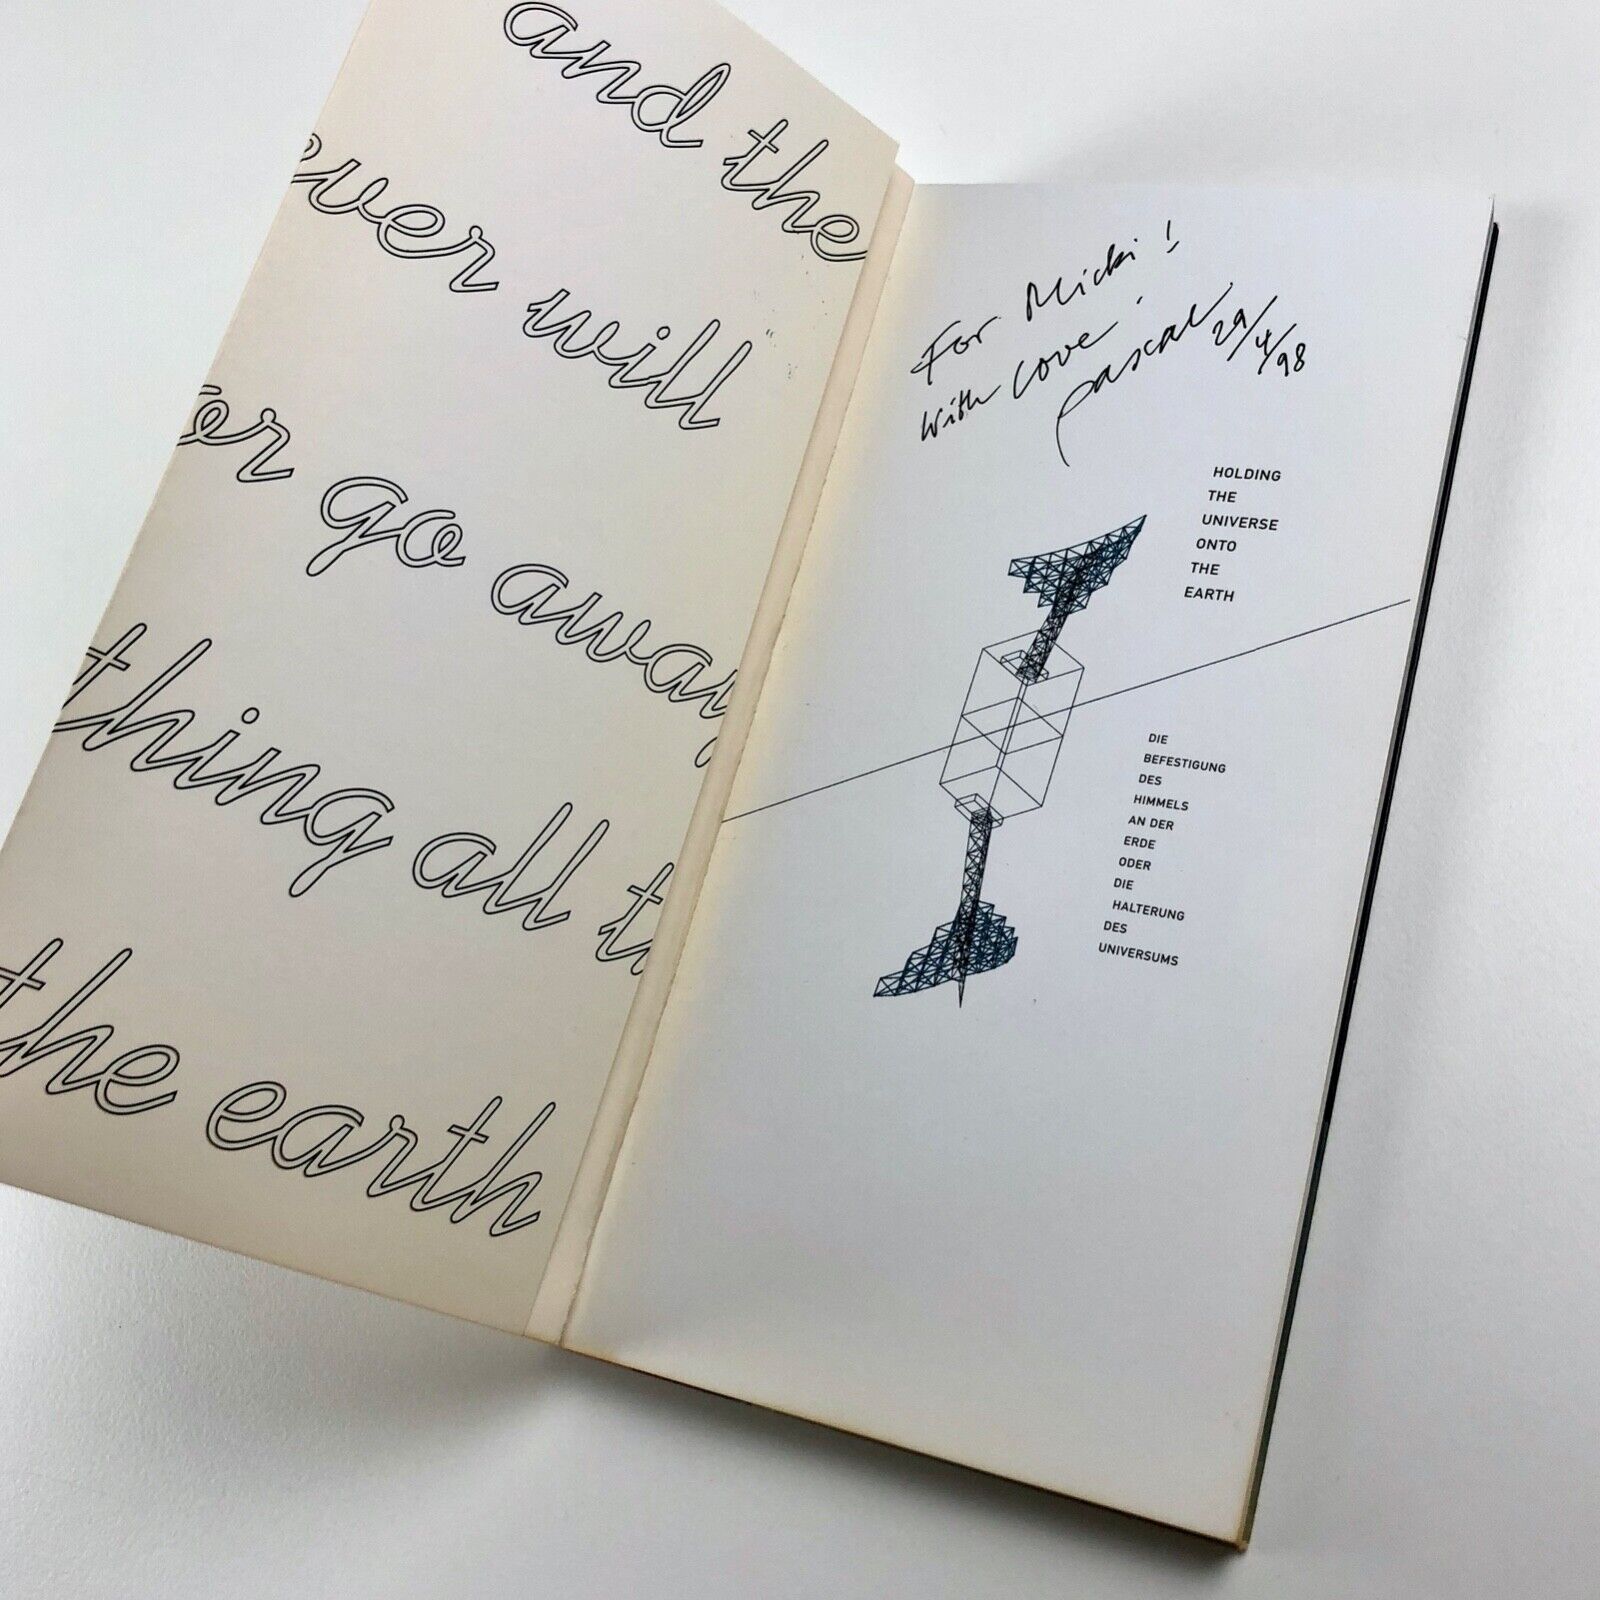 and the
ever will
er go away
thing all t
the earth
For Micki!
With Love!
Pascal 29/4/98
HOLDING
THE
UNIVERSE
ONTO
THE
EARTH
DIE
BEFESTIGUNG
DES
HIMMELS
AN DER
ERDE
ODER
DIE
HALTERUNG
DES
UNIVERSUMS